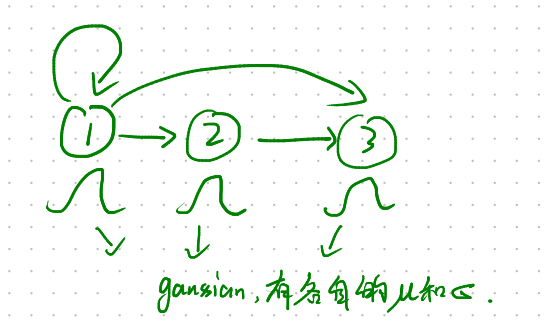 1 2 3
gaussian, 有各自的μ和σ.